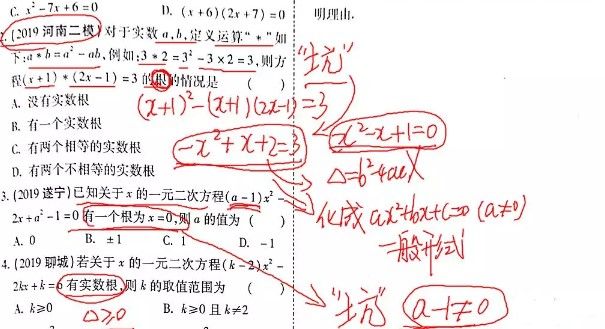 C. x²-7x+6=0 D. (x+6)(2x+7)=0
明理由.
2. (2019 河南二模)对于实数 a,b,定义运算"*"如
下:a*b=a²-ab,例如:3*2=3²-3×2=3,则方
程(x+1)*(2x-1)=3的根的情况是 ( )
A. 没有实数根
B. 有一个实数根
C. 有两个相等的实数根
D. 有两个不相等的实数根
"坑"
(x+1)²-(x+1)(2x-1)=3
-x²+x+2=3
x²-x+1=0
△=b²-4ac
化成 ax²+bx+c=0 (a≠0)
一般形式
3. (2019 遂宁)已知关于 x 的一元二次方程(a-1)x²-
2x+a²-1=0有一个根为x=0,则 a 的值为 ( )
A. 0 B. ±1 C. 1 D. -1
4. (2019 聊城)若关于 x 的一元二次方程(k-2)x²-
2kx+k=6有实数根,则 k 的取值范围为 ( )
A. k≥0 B. k≥0 且 k≠2
△≥0
"坑" a-1≠0